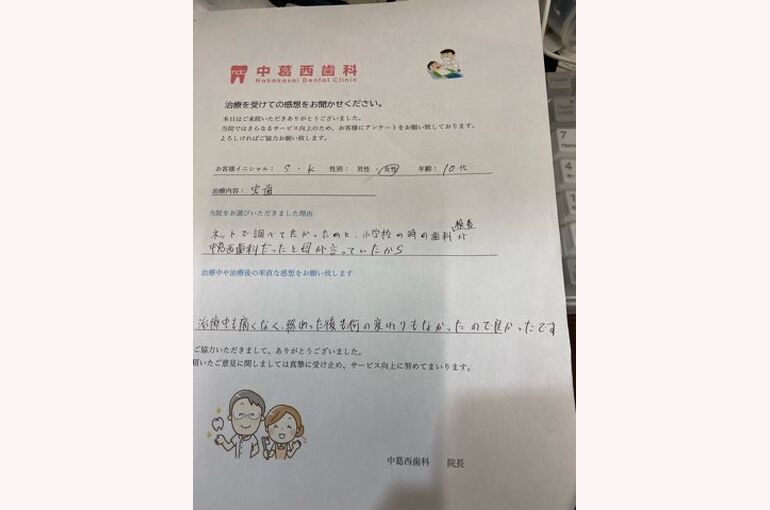 中葛西歯科
Nakakasai Dental Clinic
治療を受けての感想をお聞かせください。
本日はご来院いただきありがとうございました。
当院ではさらなるサービス向上のため、お客様にアンケートをお願い致しております。
よろしければご協力お願い致します。
お客様イニシャル： S・K 性別： 男性・女性 年齢： 10代
治療内容： 虫歯
当院をお選びいただきました理由
ネットで調べて出たのと、小学校の時の歯科検査が
中葛西歯科だったと母が言っていたから
治療中や治療後の率直な感想をお願い致します
治療中も痛くなく、終わった後も何の変わりもなかったので良かったです
ご協力いただきまして、ありがとうございました。
頂いたご意見に関しましては真摯に受け止め、サービス向上に努めてまいります。
中葛西歯科 院長
7
Home
4
1